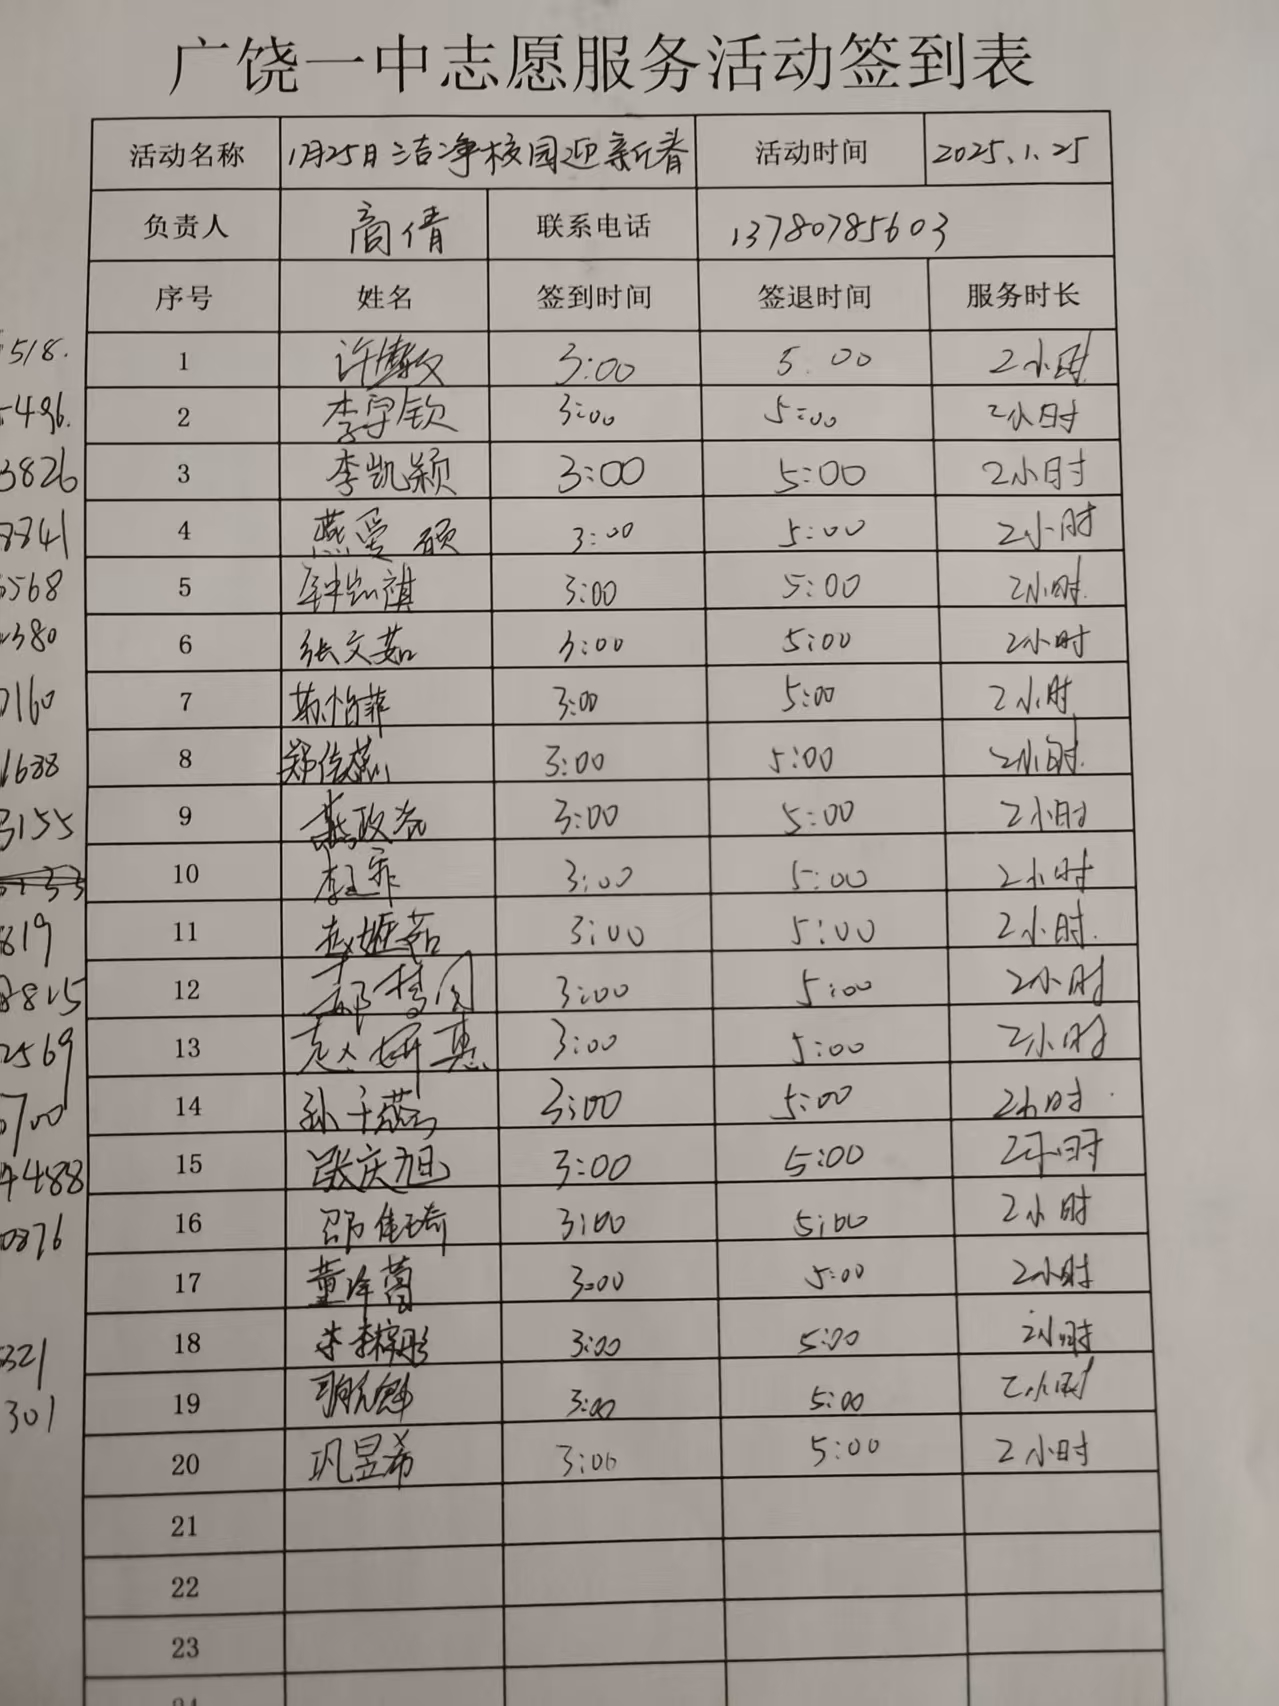 广饶一中志愿服务活动签到表
活动名称 1月25日洁净校园迎新春 活动时间 2025.1.25
负责人 高倩 联系电话 13780785603
序号 姓名 签到时间 签退时间 服务时长
518. 1 许博文 3:00 5:00 2小时
496. 2 李宇钦 3:00 5:00 2小时
3826 3 李凯颖 3:00 5:00 2小时
8841 4 燕曼硕 3:00 5:00 2小时
568 5 3:00 5:00 2小时.
380 6 张文茹 3:00 5:00 2小时
160 7 苏怡菲 3:00 5:00 2小时
1688 8 3:00 5:00 2小时.
3155 9 3:00 5:00 2小时
10 3:00 5:00 2小时
819 11 赵姬茹 3:00 5:00 2小时.
8815 12 3:00 5:00 2小时
2569 13 3:00 5:00 2小时
700 14 孙千燕 3:00 5:00 2小时
4488 15 张庆旭 3:00 5:00 2小时
0876 16 邵佳琦 3:00 5:00 2小时
17 3:00 5:00 2小时
321 18 3:00 5:00 2小时
301 19 3:00 5:00 2小时
20 巩昱希 3:00 5:00 2小时
21
22
23